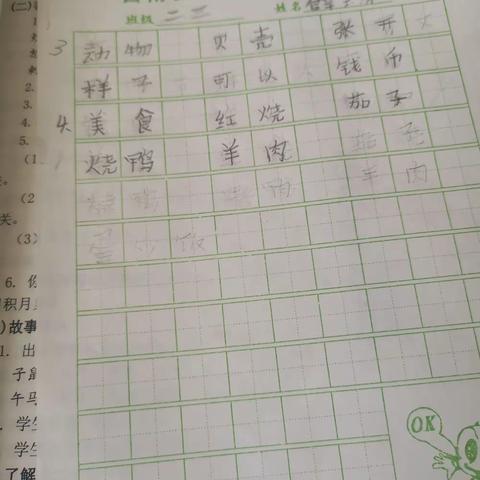 班级 二三 姓名
3 动物 贝壳 张开
样子 可以 钱币
4. 美食 红烧 茄子
烧鸭 羊肉
羊肉
蛋炒饭
OK
2.
3.
4.
5.
(2
关。
(3)
6. 你
积月
)故事
1. 出
子鼠
午马
学生
学生
了解